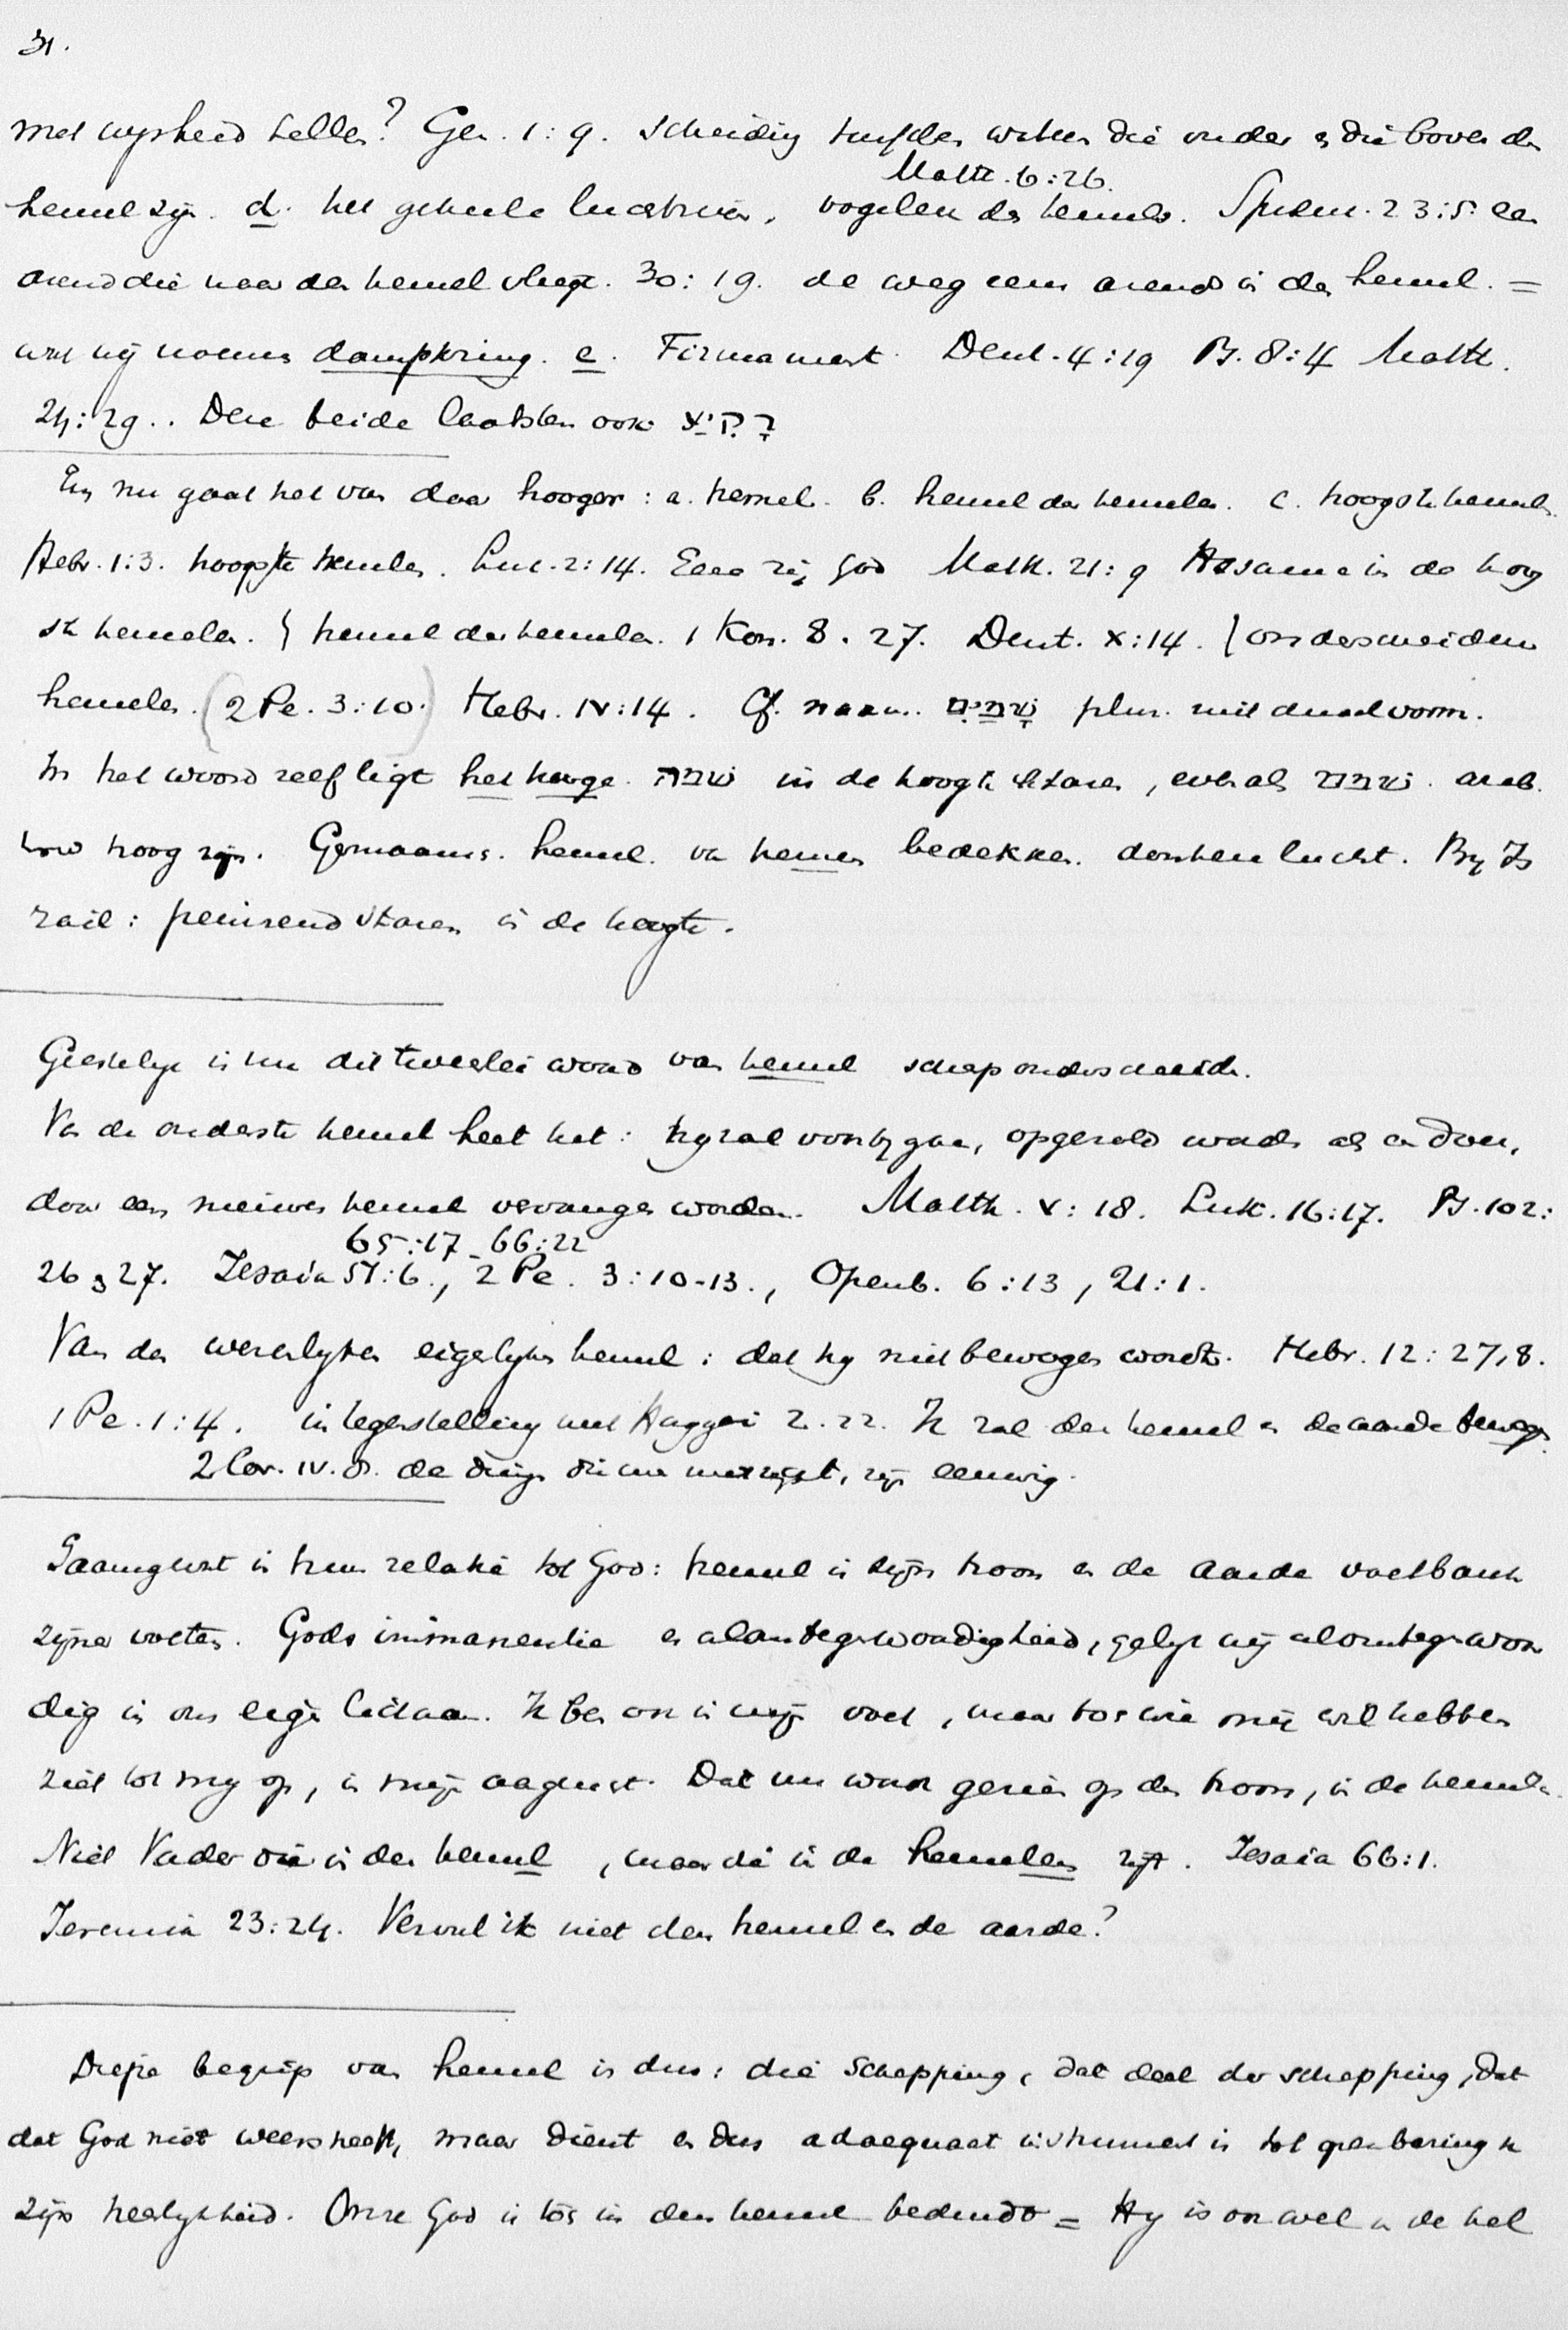 31.
met wysheid tellen? Gen. 1:9. scheiding tusschen wateren die onder en die boven den
Matth. 6:26.
hemel zijn. d. het geheele luchtruim, vogelen des hemels. Spreuk. 23:5. een
arend die naar den hemel vliegt. 30:19. de weg eens arends in den hemel. =
wat wij noemen dampkring. e. Firmament. Deut. 4:19 Ps. 8:4 Matth.
24:29.. Deze beide laatsten ook רָקִיעַ
En nu gaat het van daar hooger: a. hemel. b. hemel der hemelen. c. hoogste hemelen.
Hebr. 1:3. hoogste hemelen. Luc. 2:14. Eere zij God Matth. 21:9 Hosanna in de hoog
ste hemelen. } hemel der hemelen. 1 Kon. 8.27. Deut. X:14. / onderscheidene
hemelen. (2 Pe. 3:10.) Hebr. IV:14. Cf. naam. שָׁמַיִם plur. niet dualvorm.
In het woord zelf ligt het hooge. שמה in de hoogte staren, evenals שמם. arab.
hoog zijn. Germaans. hemel. van hemen bedekken. donkere lucht. By Is
raël: peinzend staren in de hoogte.
Geestelyk is nu dit tweeërlei woord van hemel scherp onderscheiden.
Van de onderste hemel heet het: hy zal voorbygaan, opgerold worden als een doek,
door een nieuwen hemel vervangen worden. Matth. V:18. Luk. 16:17. Ps. 102:
65:17 66:22
26 en 27. Jesaia 51:6., 2 Pe. 3:10-13., Openb. 6:13, 21:1.
Van den werkelyken eigenlyken hemel: dat hy niet bewogen wordt. Hebr. 12:27,8.
1 Pe. 1:4. in tegenstelling met Haggai 2.22. Ik zal den hemel en de aarde bewegen.
2 Cor. IV.18. de dingen die men niet ziet, zijn eeuwig.
Saamgevat in hun relatie tot God: hemel is zijn troon en de aarde voetbank
zijner voeten. Gods immanentie en alomtegenwoordigheid, gelyk wij alomtegenwoor
dig in ons eigen lichaam. Ik ben ook in mijn voet, maar toch wie mij wil hebben
ziet tot my op, in mijn aangezicht. Dat nu waar gezien op den troon, in de hemelen.
Niet Vader die in den hemel, maar die in de hemelen zijt. Jesaia 66:1.
Jeremia 23:24. Vervul ik niet den hemel en de aarde?
Diepe begrip van hemel is dus: die schepping, dat deel der schepping, dat
dat God niet weerstreeft, maar dient en dus adaequaat instrument is tot openbaring van
zijn heerlykheid. Onze God is tòch in den hemel beduidt = Hy is ook wel in de hel